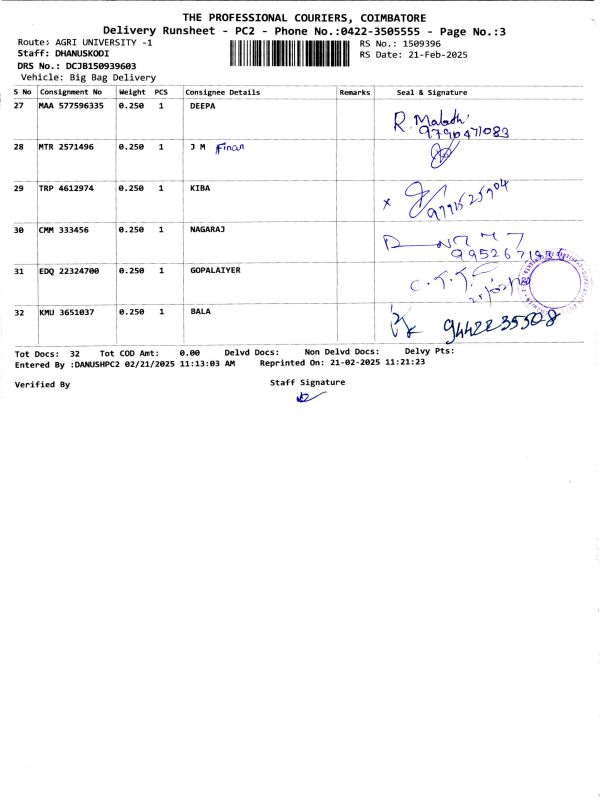 THE PROFESSIONAL COURIERS, COIMBATORE
Delivery Runsheet - PC2 - Phone No.:0422-3505555 - Page No.:3
Route: AGRI UNIVERSITY -1
RS No.: 1509396
Staff: DHANUSKODI
RS Date: 21-Feb-2025
DRS No.: DCJB150939603
Vehicle: Big Bag Delivery
S No Consignment No Weight PCS Consignee Details Remarks Seal & Signature
27 MAA 577596335 0.250 1 DEEPA
R. Malathi
9790471083
28 MTR 2571496 0.250 1 J M Finan
29 TRP 4612974 0.250 1 KIBA
x 9791525904
30 CMM 333456 0.250 1 NAGARAJ
31 EDQ 22324700 0.250 1 GOPALAIYER
32 KMU 3651037 0.250 1 BALA
9442235508
Tot Docs: 32 Tot COD Amt: 0.00 Delvd Docs: Non Delvd Docs: Delvy Pts:
Entered By :DANUSHPC2 02/21/2025 11:13:03 AM Reprinted On: 21-02-2025 11:21:23
Verified By
Staff Signature